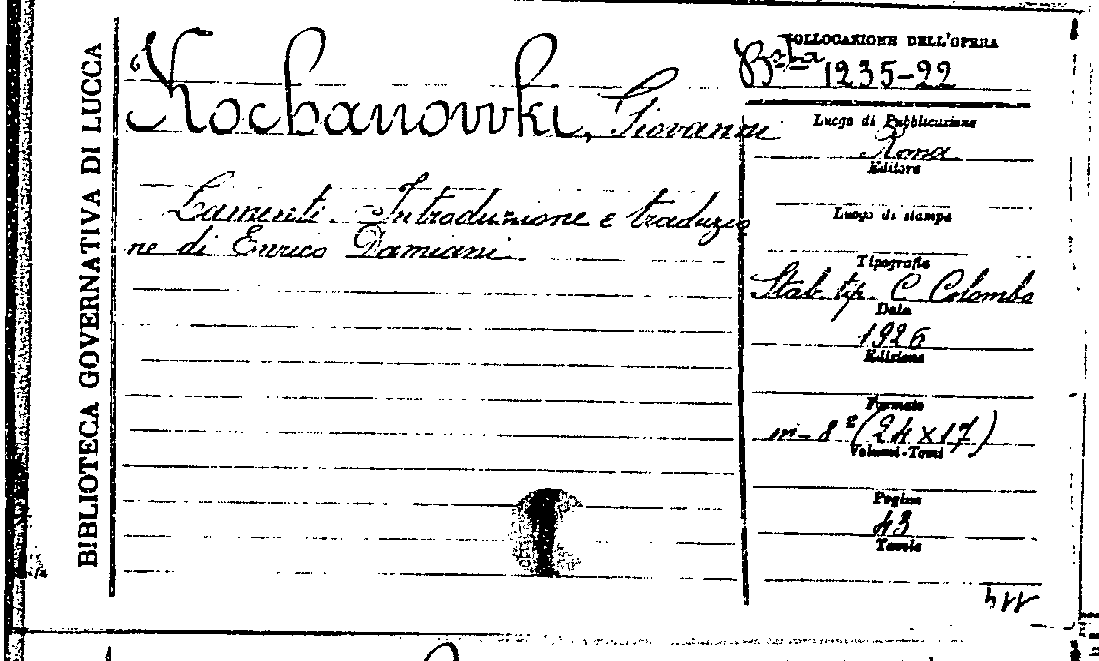 BIBLIOTECA GOVERNATIVA DI LUCCA
Kochanowki, Giovanni
Lamenti. Introduzione e traduzio
ne di Enrico Damiani.
COLLOCAZIONE DELL'OPERA
Bta 1235-22
Luogo di Pubblicazione
Roma
Editore
Luogo di stampa
Tipografia
Stab. tip. C. Colombo
Data
1926
Edizione
Formato
in-8° (24 x 17)
Volumi-Tomi
Pagine
43
Tavole